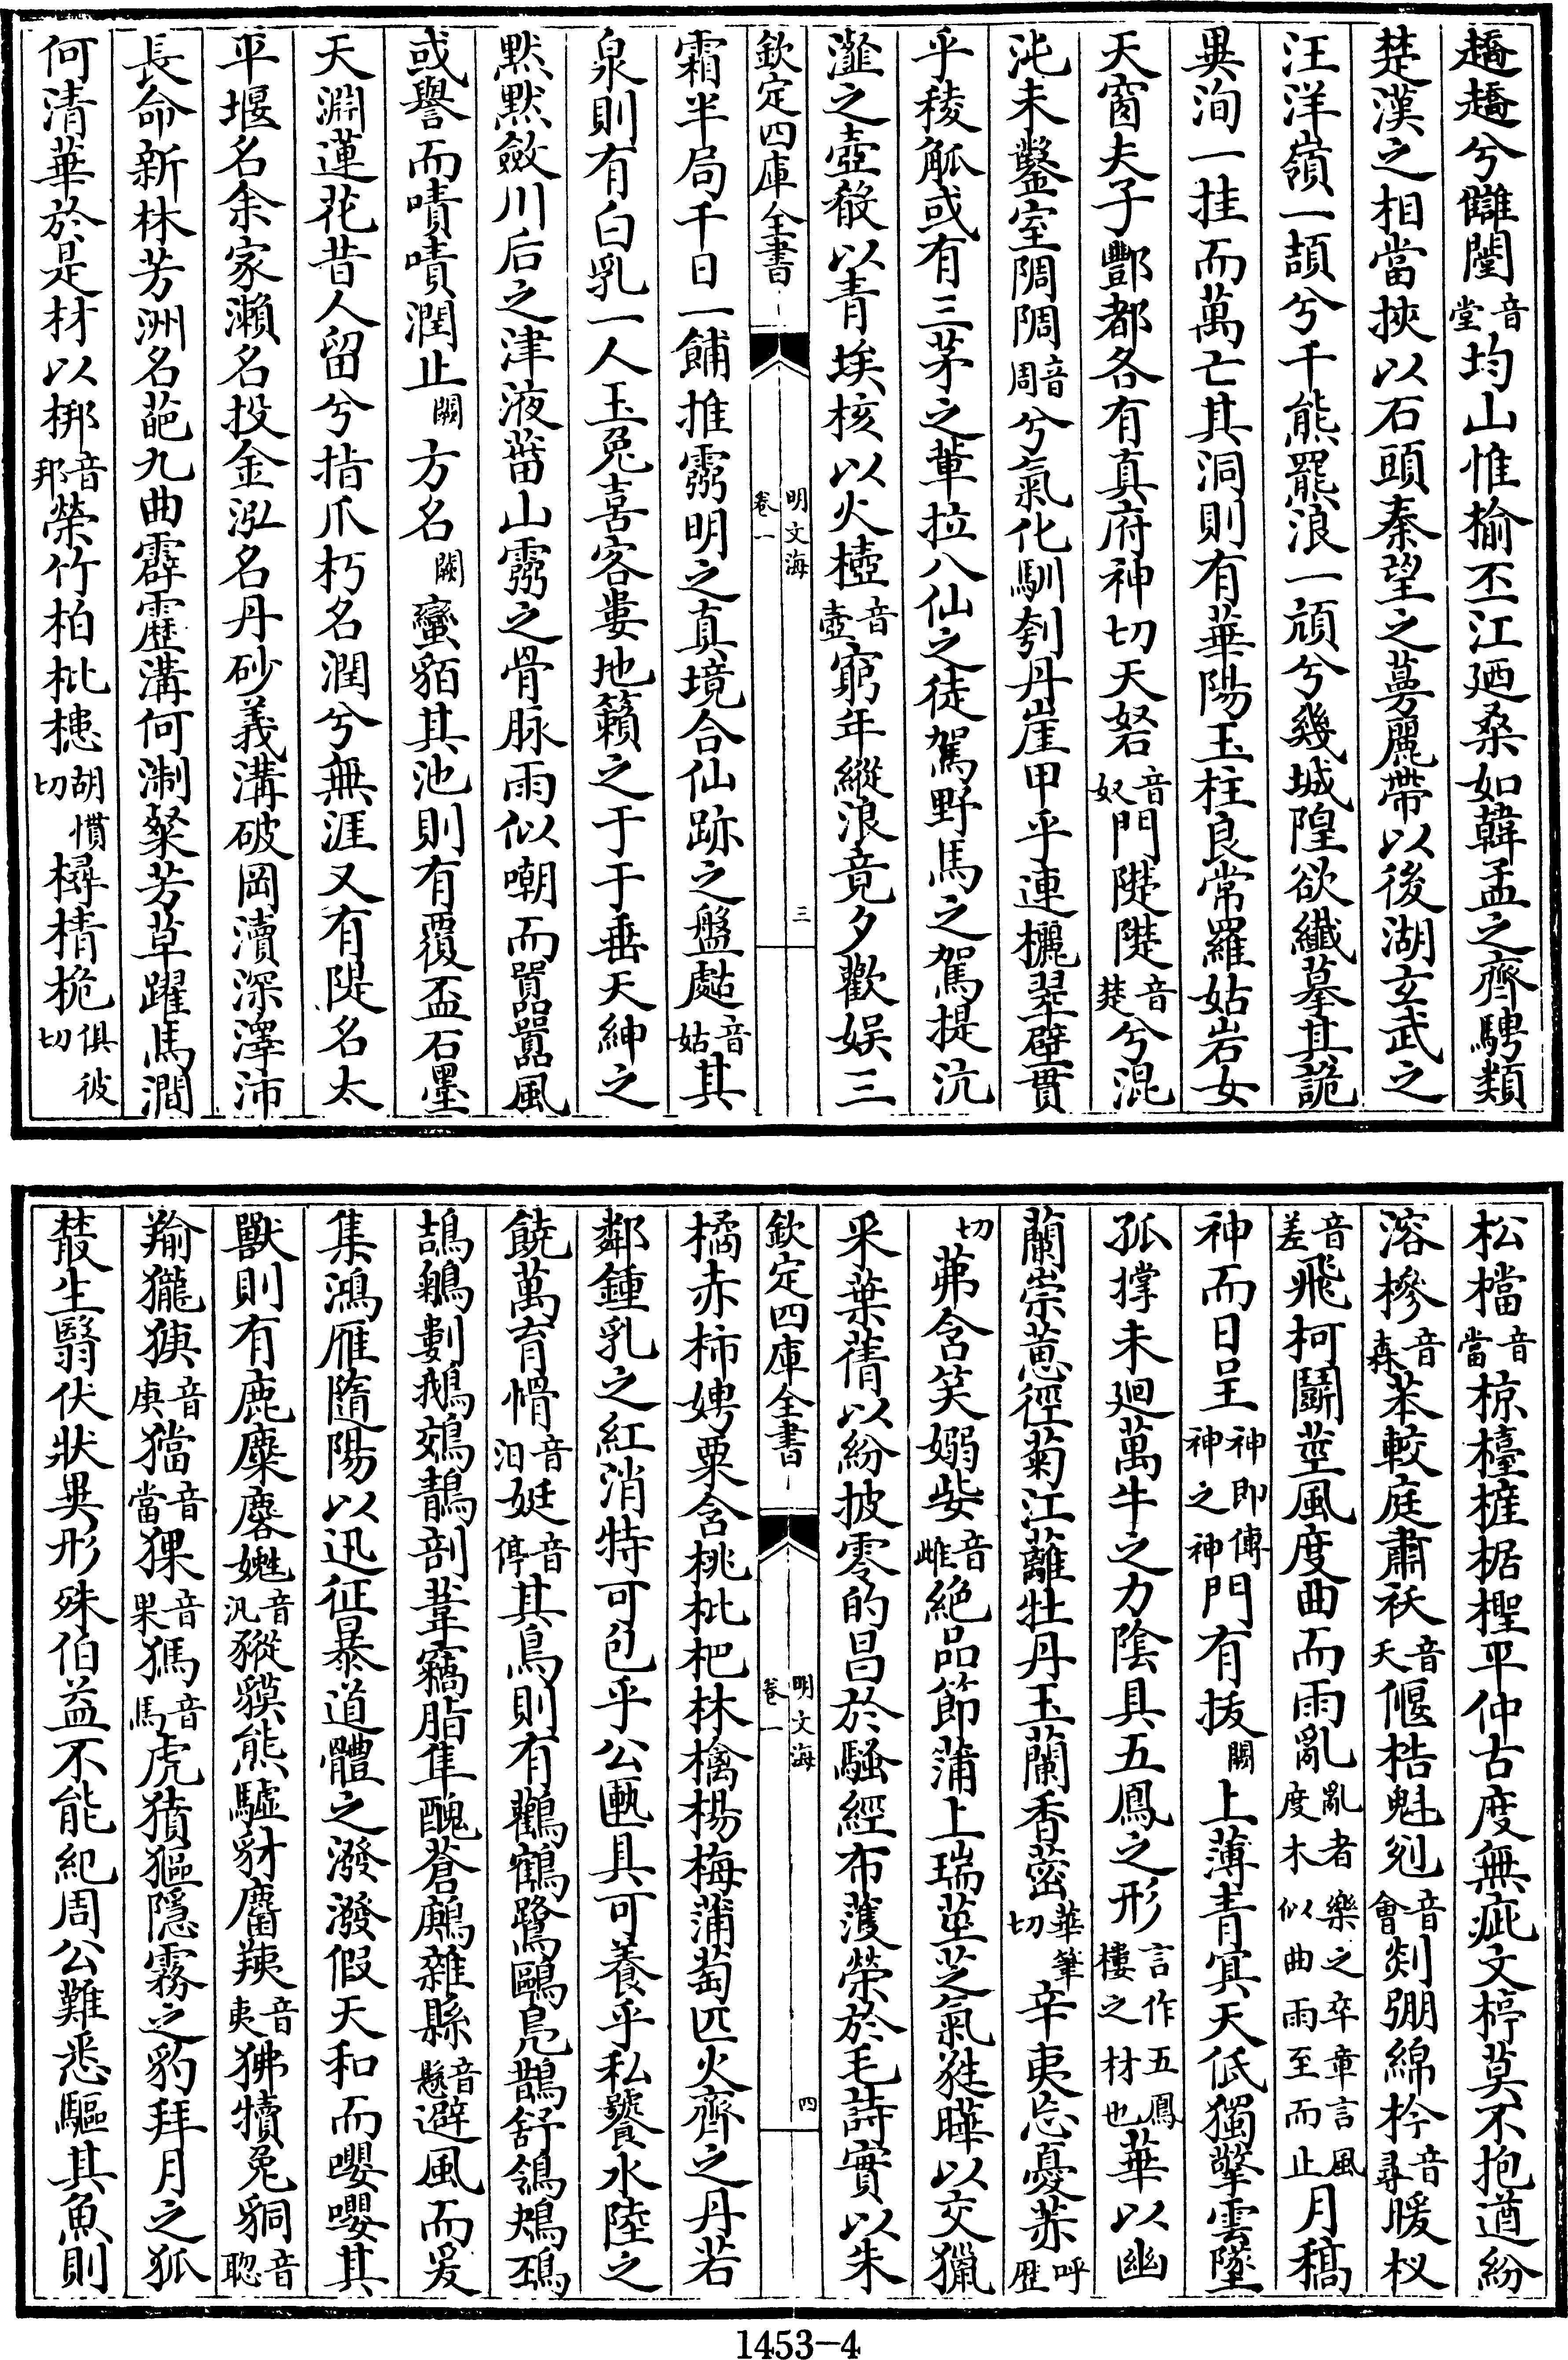 趫趫兮讎闛音堂均山惟揄丕江廼桑如韓孟之齊騁類
楚漢之相當挾以石頭秦望之蔓麗帶以後湖玄武之
汪洋嶺一頡兮千熊羆浪一頏兮幾城隍欲纖摹其詭
異洵一挂而萬亡其洞則有華陽玉柱良常羅姑岩女
天窗夫子酆都各有真府神切天砮音奴門䠂䠂音楚兮混
沌未鑿室阛阛音周兮氣化馴刳丹崖甲乎連欐翠壁貫
乎稜觚或有三茅之輩拉八仙之徒駕野馬之駕提沆
瀣之壺殽以青埃核以火㯏音壺窮年縱浪竟夕歡娱三
欽定四庫全書
明文海
卷一
三
霜半局千日一餔推霛明之真境合仙跡之盤䀇音姑其
泉則有白乳一人玉兔喜客婁地籟之于于垂天紳之
默默斂川后之津液蓄山霛之骨脉雨似嘲而嚚嚚風
或譽而嘖嘖潤止闕方名闕蠻貊其池則有覆盃石墨
天淵蓮花昔人留兮指爪朽名潤兮無涯又有陡名太
平堰名余家瀨名投金泓名丹砂義溝破岡瀆深澤沛
長命新林芳洲名葩九曲霹靂溝何淛粲芳草躍馬澗
何清華於是材以梆音邦榮竹柏枇槵胡慣切樳棈桅俱彼切
松檔音當椋橦榷椐檉平仲古度無疵文楟莫不抱遒紛
溶槮音森苯較庭肅袄音天偃梏魁剜音會剡弸綿枔音尋暖杈
音差飛柯鬭莖風度曲而雨亂亂者樂之卒章言風度木似曲雨至而止月稿
神而日呈神即傳神之神門有拔闕上薄青冥天低獨擎雲墜
孤撑未廻萬牛之力陰具五鳳之形言作五鳳樓之材也華以幽
蘭崇蔥徑菊江蘺牡丹玉蘭香䔉華筆切辛夷忘憂䒷呼歷
切茀含笑嫋姕音雌絶品節蒲上瑞莖芝氣蕤曄以交獵
采葉蒨以紛披零的昌於騷經布蔆榮於毛詩實以朱
欽定四庫全書
明文海
卷一
四
橘赤柿娉栗含桃枇杷林檎楊梅蒲萄匹火齊之丹若
鄰鍾乳之紅消特可包乎公匭具可養乎私饔水陸之
饒萬育㥌音汨娗音停其鳥則有鸛鶴鷺鷗鳧鵲舒鴿鴂鵐
鴶鵃劃鵝鵁鶄剖葦竊脂隼醜蒼鷓雜縣音懸避風而爰
集鴻雁隨陽以迅征暴道體之潑潑假天和而嚶嚶其
獸則有鹿麋麔㜇音汎豵貘熊驢豺麕羠音夷狒犢兔䝋音聰
羭㺜㹭音庚㼕音當猓音果獁音馬虎獖貙隱霧之豹拜月之狐
聚生翳伏狀異形殊伯益不能紀周公難悉驅其魚則
1453-4